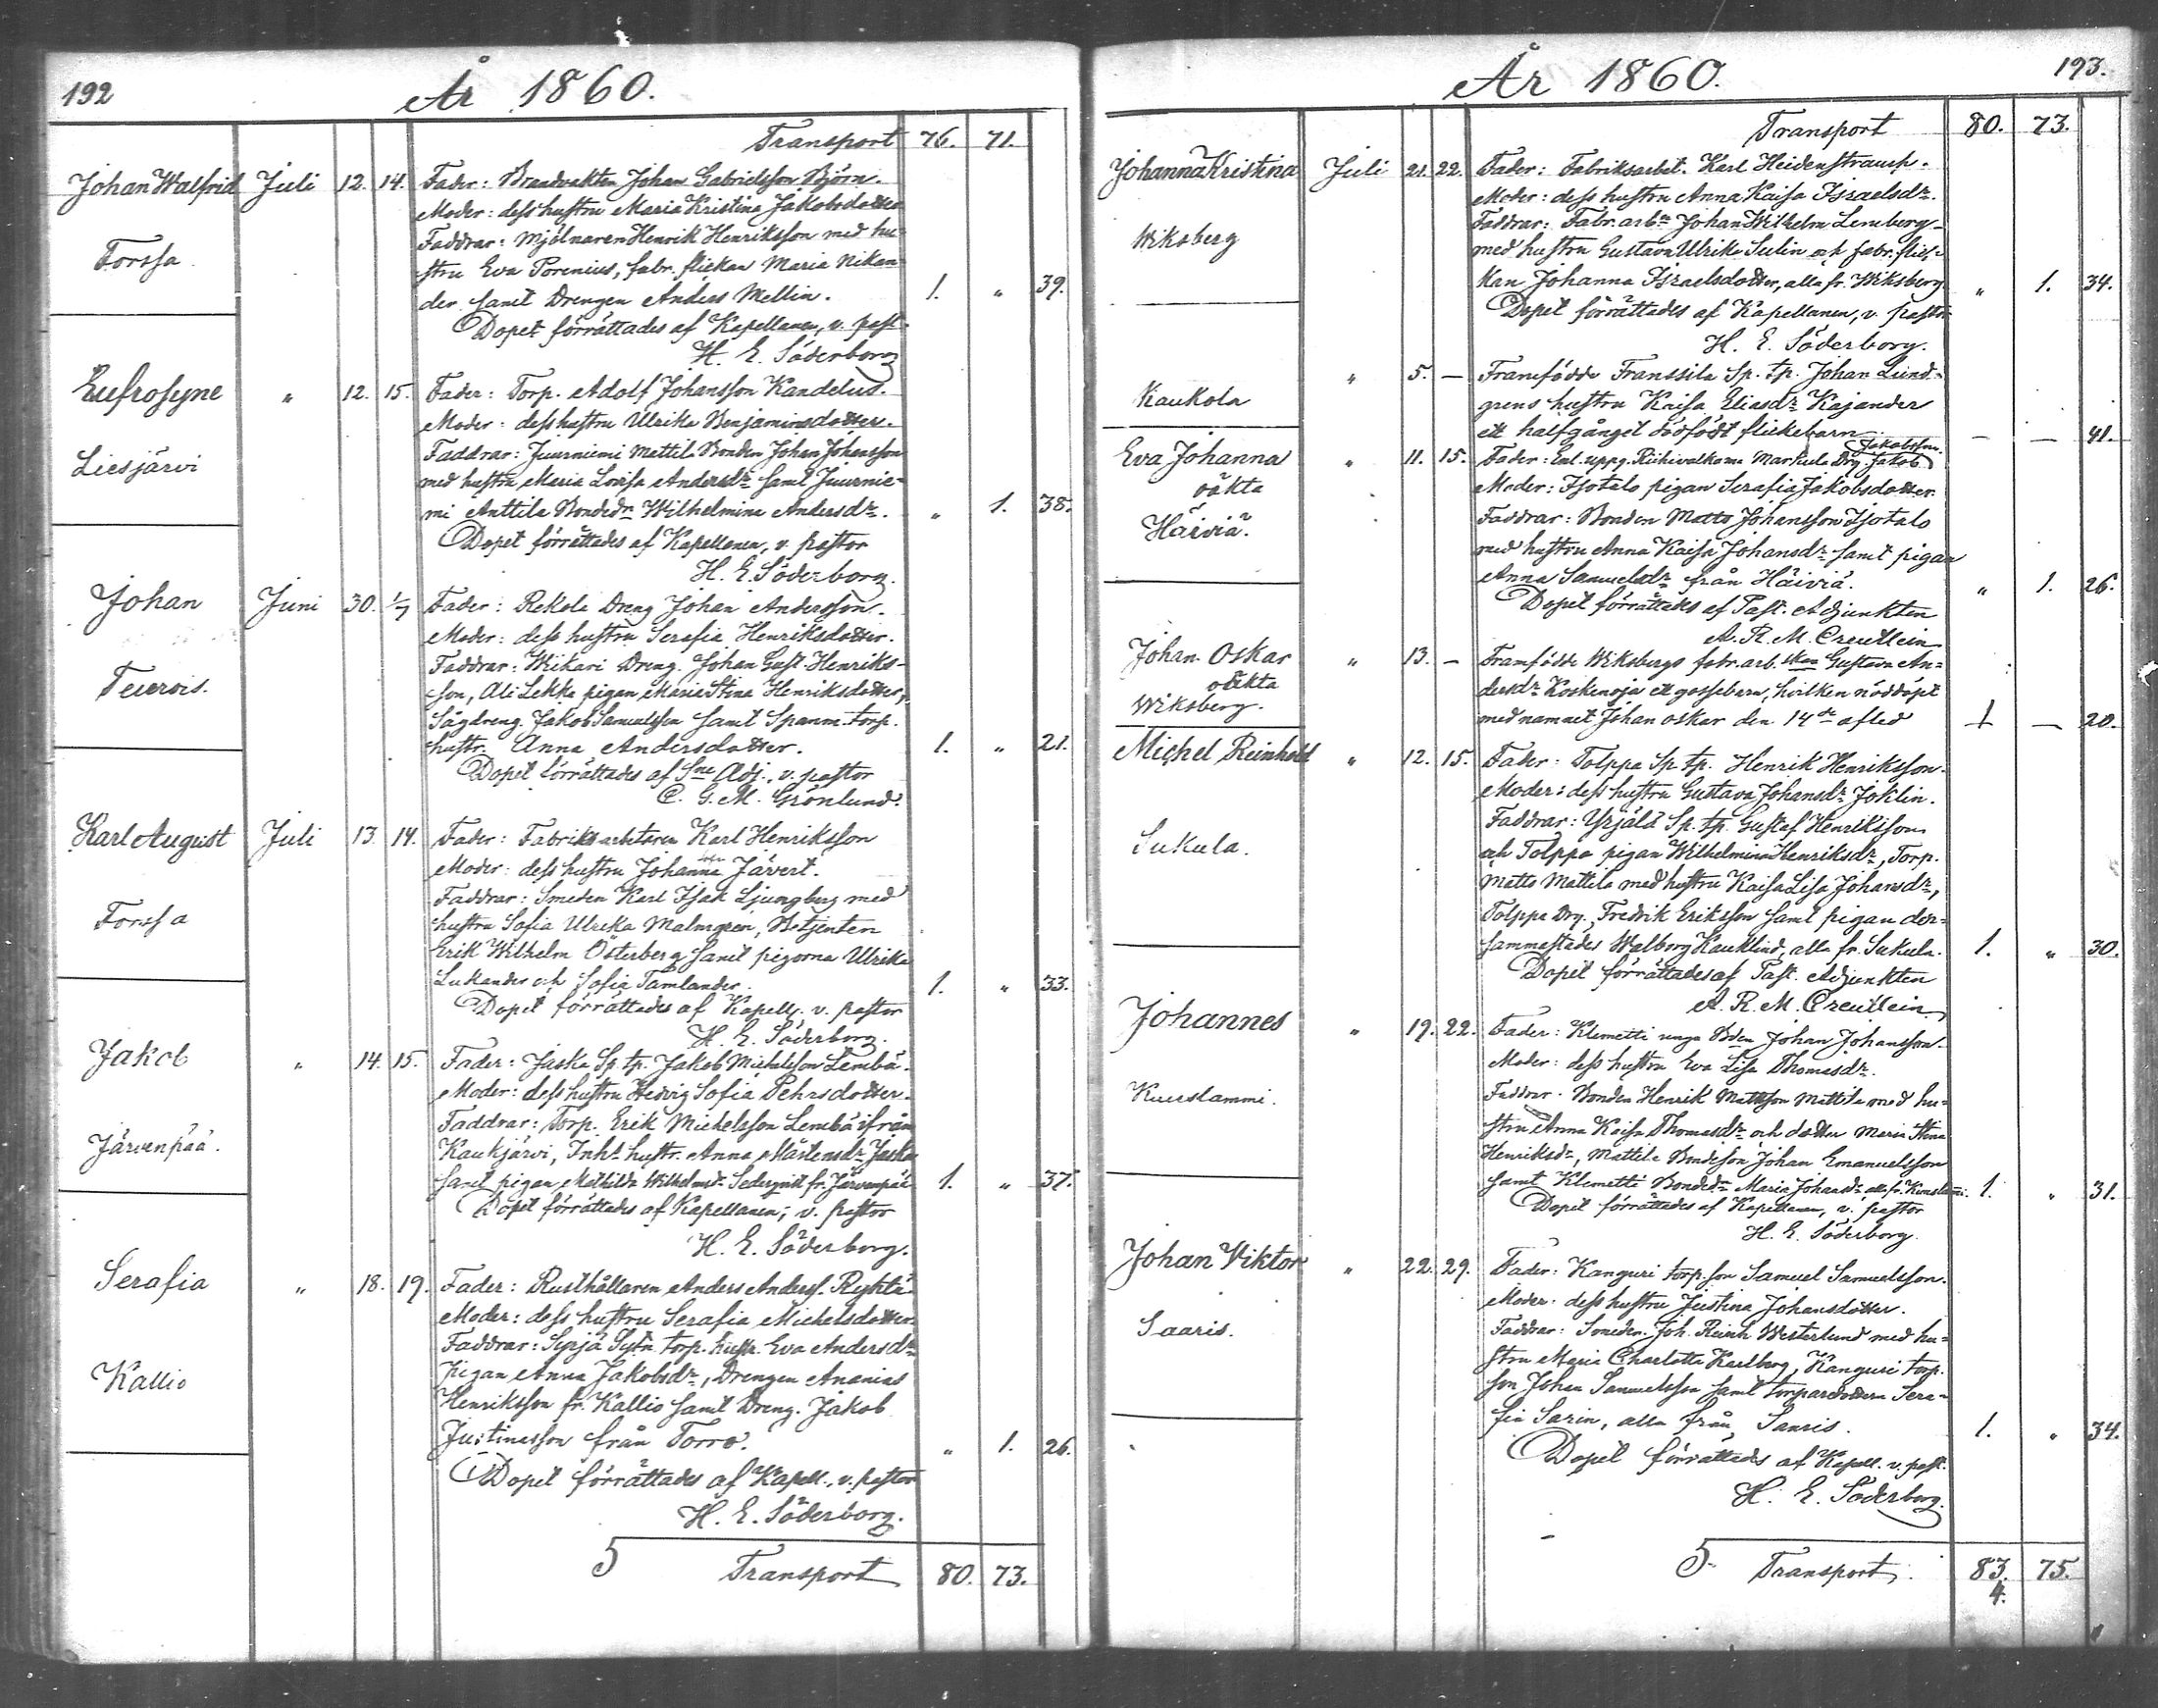 192
År 1860.
Transport 76. 71.
Johan Walfrid Juli 12. 14. Fader: Brandvakten Johan Gabrielsson Björn.
Moder: dess hustru Maria Kristina Jakobsdotter
Faddrar: Mjölnaren Henrik Henriksson med hu-
Forssa
stru Eva Porenius, fabr. flickan Maria Nikan-
der samt Drengen Anders Mellin. 1. " 39.
Dopet förrättades af Kapellanen, v. past.
H. E. Söderborg
Eufrosyne " 12. 15. Fader: Torp. Adolf Johansson Kandelus.
Moder: dess hustru Ulrika Benjaminsdotter.
Faddrar: Juurniemi Mattila Bonden Johan Johansson
Liesjärvi
med hustru Maria Lovisa Andersdr samt Juurnie-
mi Anttila Bondedr Wilhelmina Andersdr. " 1. 38.
Dopet förrättades af Kapellanen, v. pastor
H. E. Söderborg.
Johan Juni 30. 1/7 Fader: Rekola Dreng Johan Andersson.
Moder: dess hustru Serafia Henriksdotter.
Faddrar: Wiikari Dreng. Johan Gust. Henriks-
Teurois.
son, Ali Lekka pigan Maria Stina Henriksdotter,
Sågdreng. Jakob Samuelsson samt Spanm. torp.
hustr. Anna Andersdotter. 1. " 21.
Dopet förrättades af Sne Adj., v. pastor
C. G. M. Grönlund.
Karl August Juli 13. 14. Fader: Fabriksarbetaren Karl Henriksson
Moder: dess hustru Johanna Jävert.
Faddrar: Smeden Karl Isak Ljungberg med
Forssa
hustru Sofia Ulrika Malmgren, Betjenten
Erik Wilhelm Österberg samt pigorna Ulrika
Lukander och Sofia Tamlander. 1. " 33.
Dopet förrättades af Kapell., v. pastor
H. E. Söderborg.
Jakob " 14. 15. Fader: Jaska Sp. tp. Jakob Michelsson Lembä.
Moder: dess hustru Hedvig Sofia Pehrsdotter.
Faddrar: Torp. Erik Michelsson Lembä ifrån
Järvenpää.
Kaukjärvi, Inhs hustr. Anna Mårtensdr Jaska
samt pigan Mathilda Wilhelmsdr Sederqvist fr. Järvenpää 1. " 37.
Dopet förrättades af Kapellanen, v. pastor
H. E. Söderborg.
Serafia " 18. 19. Fader: Rusthållaren Anders Anderss. Rehtä
Moder: dess hustru Serafia Michelsdotter
Faddrar: Syrjä Sytn. torp. hustr. Eva Andersdr
Kallio
pigan Anna Jakobsdr, Drengen Ananias
Henriksson fr. Kallio samt Dreng. Jakob
Justinesson från Torro. " 1. 26.
Dopet förrättades af Kapell., v. pastor
H. E. Söderborg.
5 Transport 80. 73.
193.
År 1860.
Transport 80. 73.
Johanna Kristina Juli 21. 22. Fader: Fabriksarbet. Karl Heidenstraup.
Moder: dess hustru Anna Kaisa Israelsdr.
Faddrar: Fabr. arbn Johan Wilhelm Lemberg
Wiksberg
med hustru Gustava Ulrika Sulin och fabr. flic-
kan Johanna Israelsdotter, alla fr. Wiksberg " 1. 34.
Dopet förrättades af Kapellanen, v. pastor
H. E. Söderborg.
" 5. — Framfödde Franssila Sp. tp. Johan Lind-
Kaukola
grens hustru Kaisa Eliasdr Kajander
ett halfgånget dödfödt flickebarn — — 41.
Jakobsson.
Eva Johanna " 11. 15. Fader: Enl. uppg. Riihivalkama Markula Drg. Jakob
oäkta
Moder: Isotalo pigan Serafia Jakobsdotter
Häiviä.
Faddrar: Bonden Matts Johansson Isotalo
med hustru Anna Kaisa Johansdr samt pigan
Anna Samuelsdr från Häiviä. " 1. 26.
Dopet förrättades af Past. Adjunkten
A. R. M. Creutlein
Johan Oskar " 13. — Framfödde Wiksbergs fabr. arb. skan Gustava An-
oäkta
dersdr Koskenoja ett gossebarn, hvilken nöddöpt
Wiksberg.
med namnet Johan Oskar den 14de afled 1 — 20.
Michel Reinhold " 12. 15. Fader: Tolppa Sp. tp. Henrik Henriksson.
Moder: dess hustru Gustava Johansdr Joklin.
Faddrar: Yrjälä Sp. tp. Gustaf Henriksson
Sukula.
och Tolppa pigan Wilhelmina Henriksdr, Torp.
Matts Mattila med hustru Kaisa Lisa Johansdr,
Tolppa Drg. Fredrik Eriksson samt pigan der-
sammastädes Walborg Kauklind, alla fr. Sukula. 1. " 30.
Dopet förrättades af Past. Adjunkten
A. R. M. Creutlein
Johannes " 19. 22. Fader: Klemetti unga Bden Johan Johansson.
Moder: dess hustru Eva Lisa Thomasdr.
Kuuslammi.
Faddrar. Bonden Henrik Mattsson Mattila med hu-
stru Anna Kaisa Thomasdr och dotter Maria Stina
Henriksdr, Mattila Bondeson Johan Emanuelsson
samt Klemetti Bondedr Maria Johansdr alla fr. Kuuslammi. 1. " 31.
Dopet förrättades af Kapellanen, v. pastor
H. E. Söderborg.
Johan Viktor " 22. 29. Fader: Kanguri torp. son Samuel Samuelsson.
Moder: dess hustru Justina Johansdotter.
Saaris.
Faddrar: Smeden Joh. Reinh. Westerlund med hu-
stru Maria Charlotta Karlberg, Kanguri torp.
son Johan Samuelsson samt torparedottern Sera-
fia Sarin, alla från Saaris. 1. " 34.
Dopet förrättades af Kapell. v. past.
H. E. Söderborg.
5. Transport 83. 75.
4.